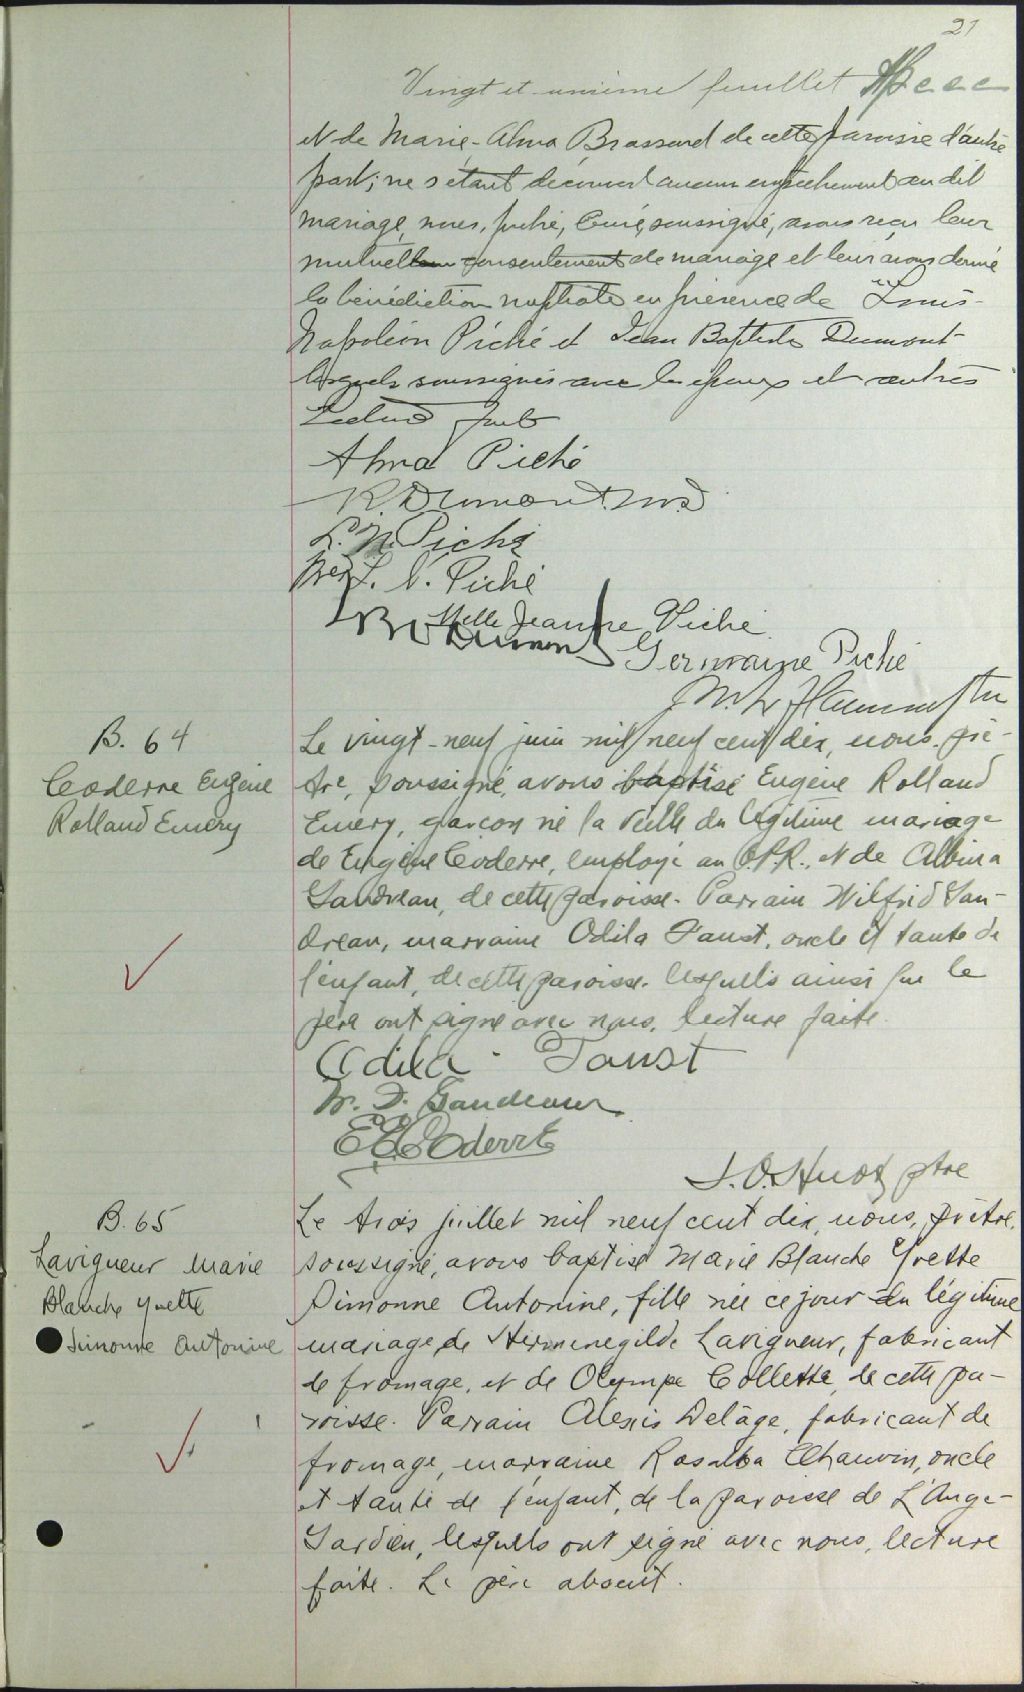 21
Vingt et unième feuillet
et de Marie-Alma Brassard de cette paroisse d'autre
part; ne s'étant découvert aucun empêchement au dit
mariage, nous, prêtre, curé, soussigné, avons reçu leur
mutuel consentement de mariage et leur avons donné
la bénédiction nuptiale en présence de Louis-
Napoléon Piché et Jean Baptiste Dumont
lesquels soussignés avec les époux et autres
Lecture faite
Alma Piché
R. Dumont m.d
L. N. Piché
L. N. Piché
Melle Jeanne Piché
Dumont
Germaine Piché
B. 64
Coderre Eugène
Rolland Emery
Le vingt-neuf juin mil neuf cent dix, nous, prê-
tre, soussigné, avons baptisé Eugène Rolland
Emery, garçon né la veille du légitime mariage
de Eugène Coderre, employé au C.P.R., et de Albina
Gaudreau, de cette paroisse. Parrain Wilfrid Gau-
dreau, marraine Odila Faust, oncle et tante de
l'enfant, de cette paroisse. lesquels ainsi que le
père ont signé avec nous, lecture faite.
Odila Faust
W. F. Gaudreau
E E Coderre
J. O. Huot ptre
B. 65
Lavigueur Marie
Blanche Yvette
Simonne Antonine
Le trois juillet mil neuf cent dix, nous, prêtre,
soussigné, avons baptisé Marie Blanche Yvette
Simonne Antonine, fille née ce jour du légitime
mariage de Herménégilde Lavigueur, fabricant
de fromage, et de Olympe Collette, de cette pa-
roisse. Parrain Alexis Delâge, fabricant de
fromage, marraine Rosalba Chauvin, oncle
et tante de l'enfant, de la paroisse de L'Ange-
Gardien, lesquels ont signé avec nous, lecture
faite. Le père absent.